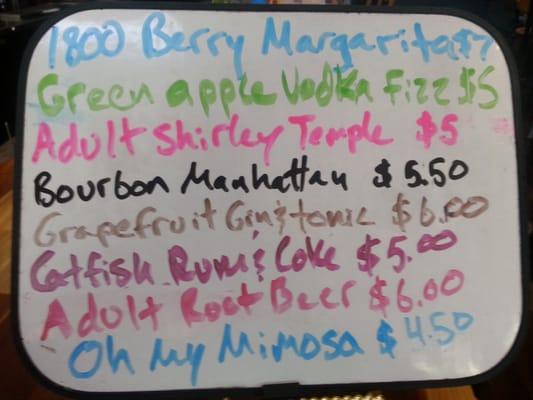 1800 Berry Margarita $7
Green apple Vodka Fizz $5
Adult Shirley Temple $5
Bourbon Manhattan $5.50
Grapefruit Gin & tonic $6.00
Catfish Rum & Coke $5.00
Adult Root Beer $6.00
Oh My Mimosa $4.50